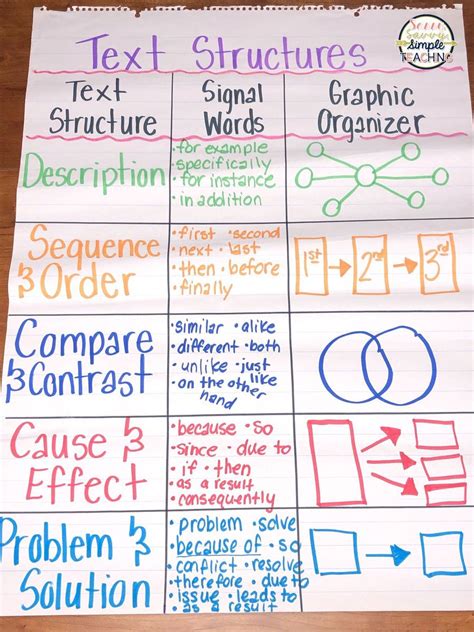 Savvy
Simple
TEACHING
Text Structures
Text
Structure
Signal
Words
Graphic
Organizer
Description
• for example
• specifically
• for instance
• in addition
Sequence
& Order
• first • second
• next • last
• then • before
• finally
1st
2nd
3rd
Compare
& Contrast
• similar • alike
• different • both
• unlike • just like
• on the other
hand
Cause &
Effect
• because • so
• since • due to
• if • then
• as a result
• consequently
Problem &
Solution
• problem • solve
• because of • so
• conflict • resolve
• therefore • due to
• issue • leads to
• as a result